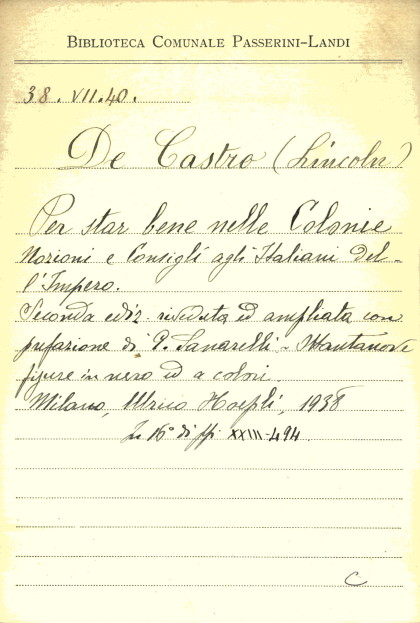 BIBLIOTECA COMUNALE PASSERINI-LANDI
38. VII.40.
De Castro (Lincoln)
Per star bene nelle Colonie
Nozioni e Consigli agli Italiani del-
l'Impero.
Seconda ediz. riveduta ed ampliata con
prefazione di G. Sanarelli - Ittantanove
figure in nero ed a colori.
Milano, Ulrico Hoepli, 1938
In 16° di pp. XXIII-494.
C